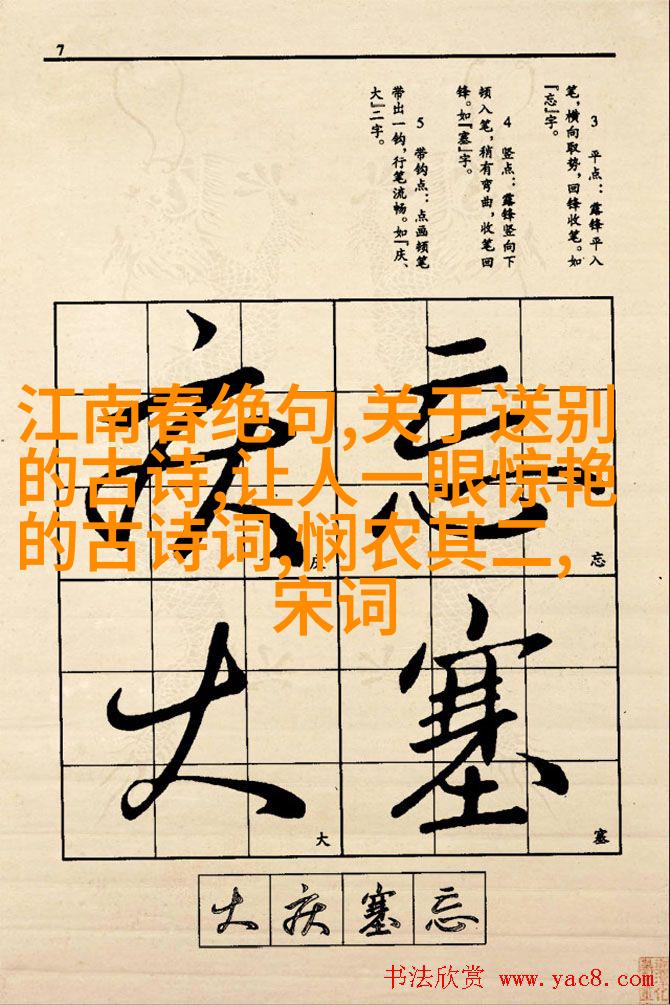 7
3 平点:露锋平入
笔,横向取势,回锋收笔。如
『忘』字。
4 竖点:露锋竖向下
顿入笔,稍有弯曲,收笔回
锋。如『塞』字。
5 带钩点:点画顿笔
带出一钩,行笔流畅。如『庆、
大』二字。
江南春绝句,关于送别
的古诗,让人一眼惊艳
的古诗词,悯农其二,
宋词
庆 忘
庆 忘
大 塞
大 塞
大 庆 塞 忘
书法欣赏 www.yac8.com